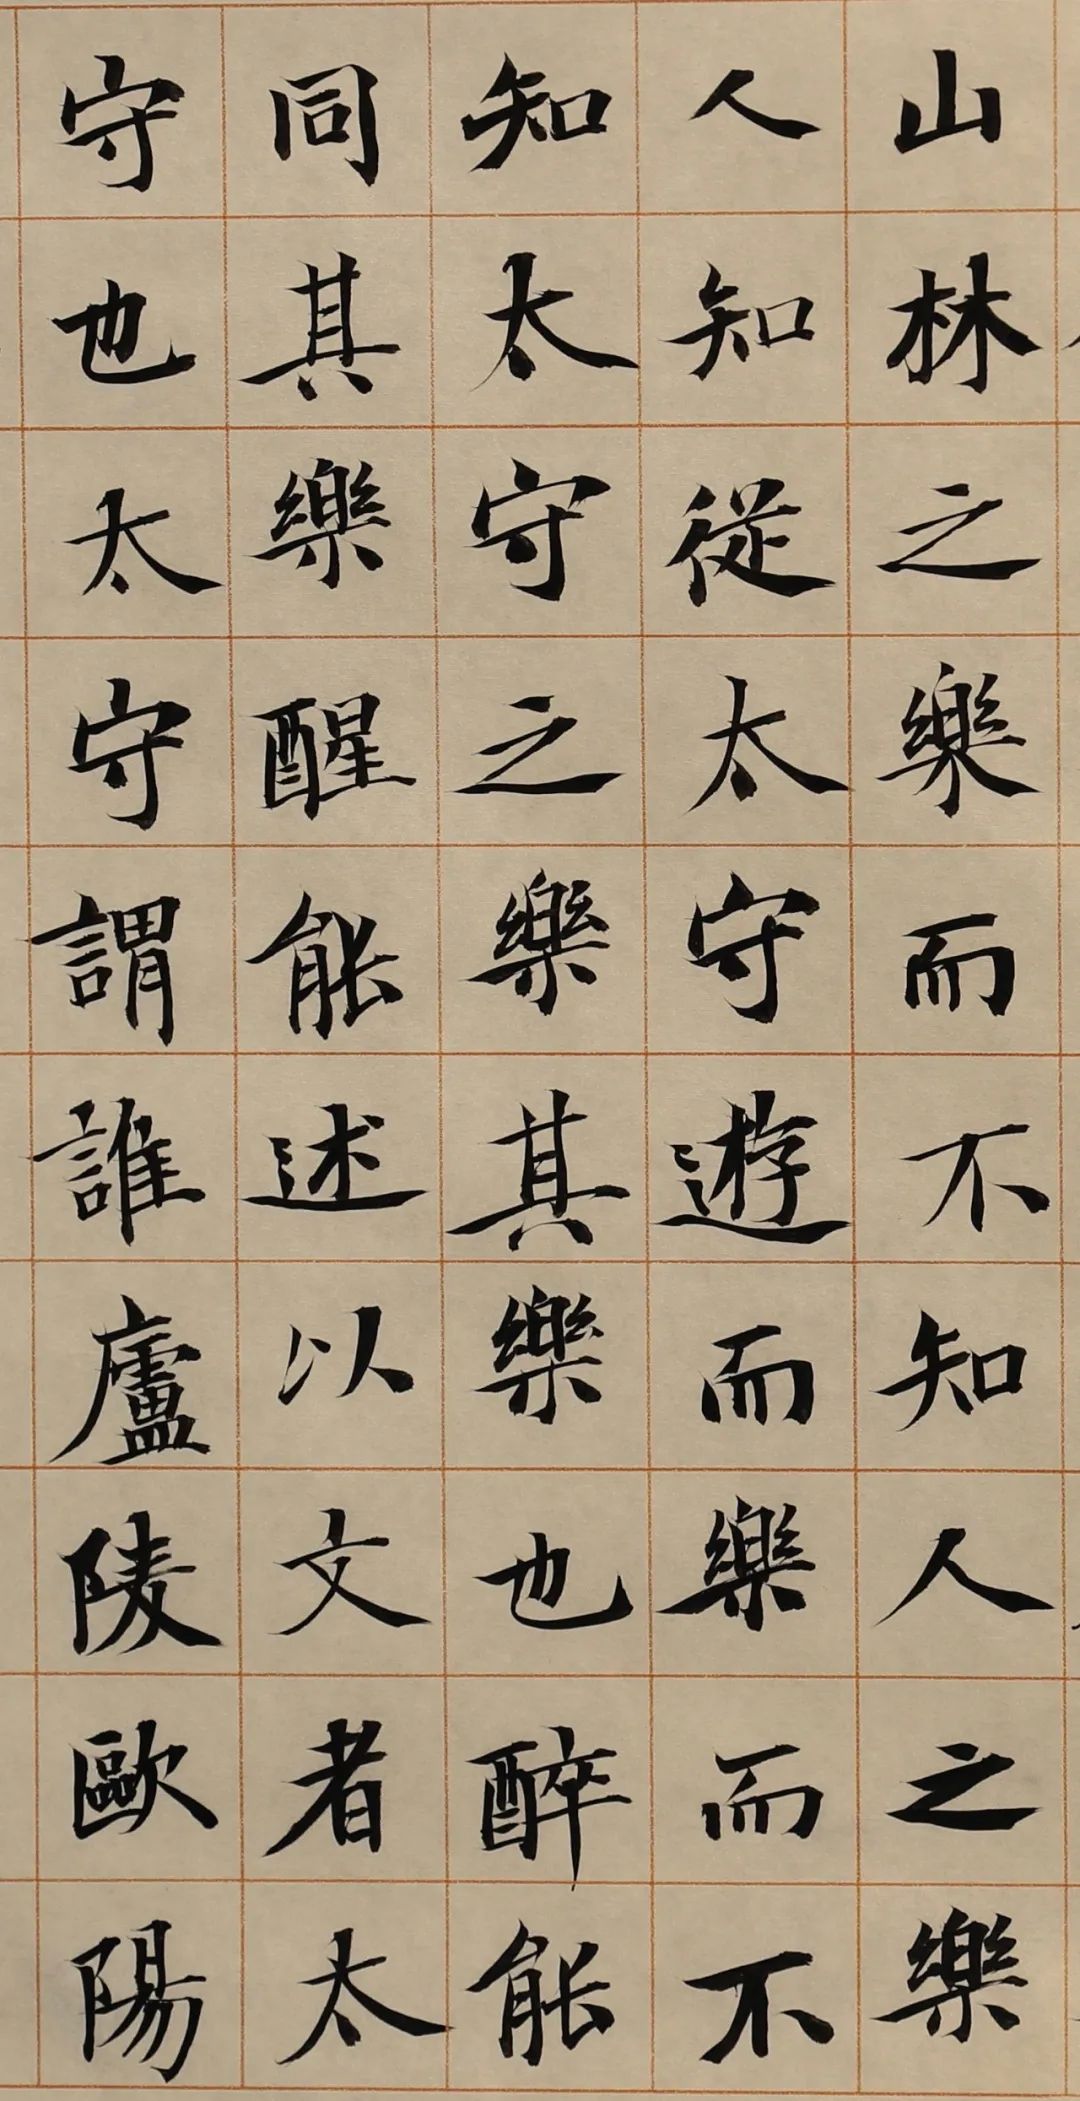 山林之樂而不知人之樂
人知從太守遊而樂而不
知太守之樂其樂也醉能
同其樂醒能述以文者太
守也太守謂誰廬陵歐陽